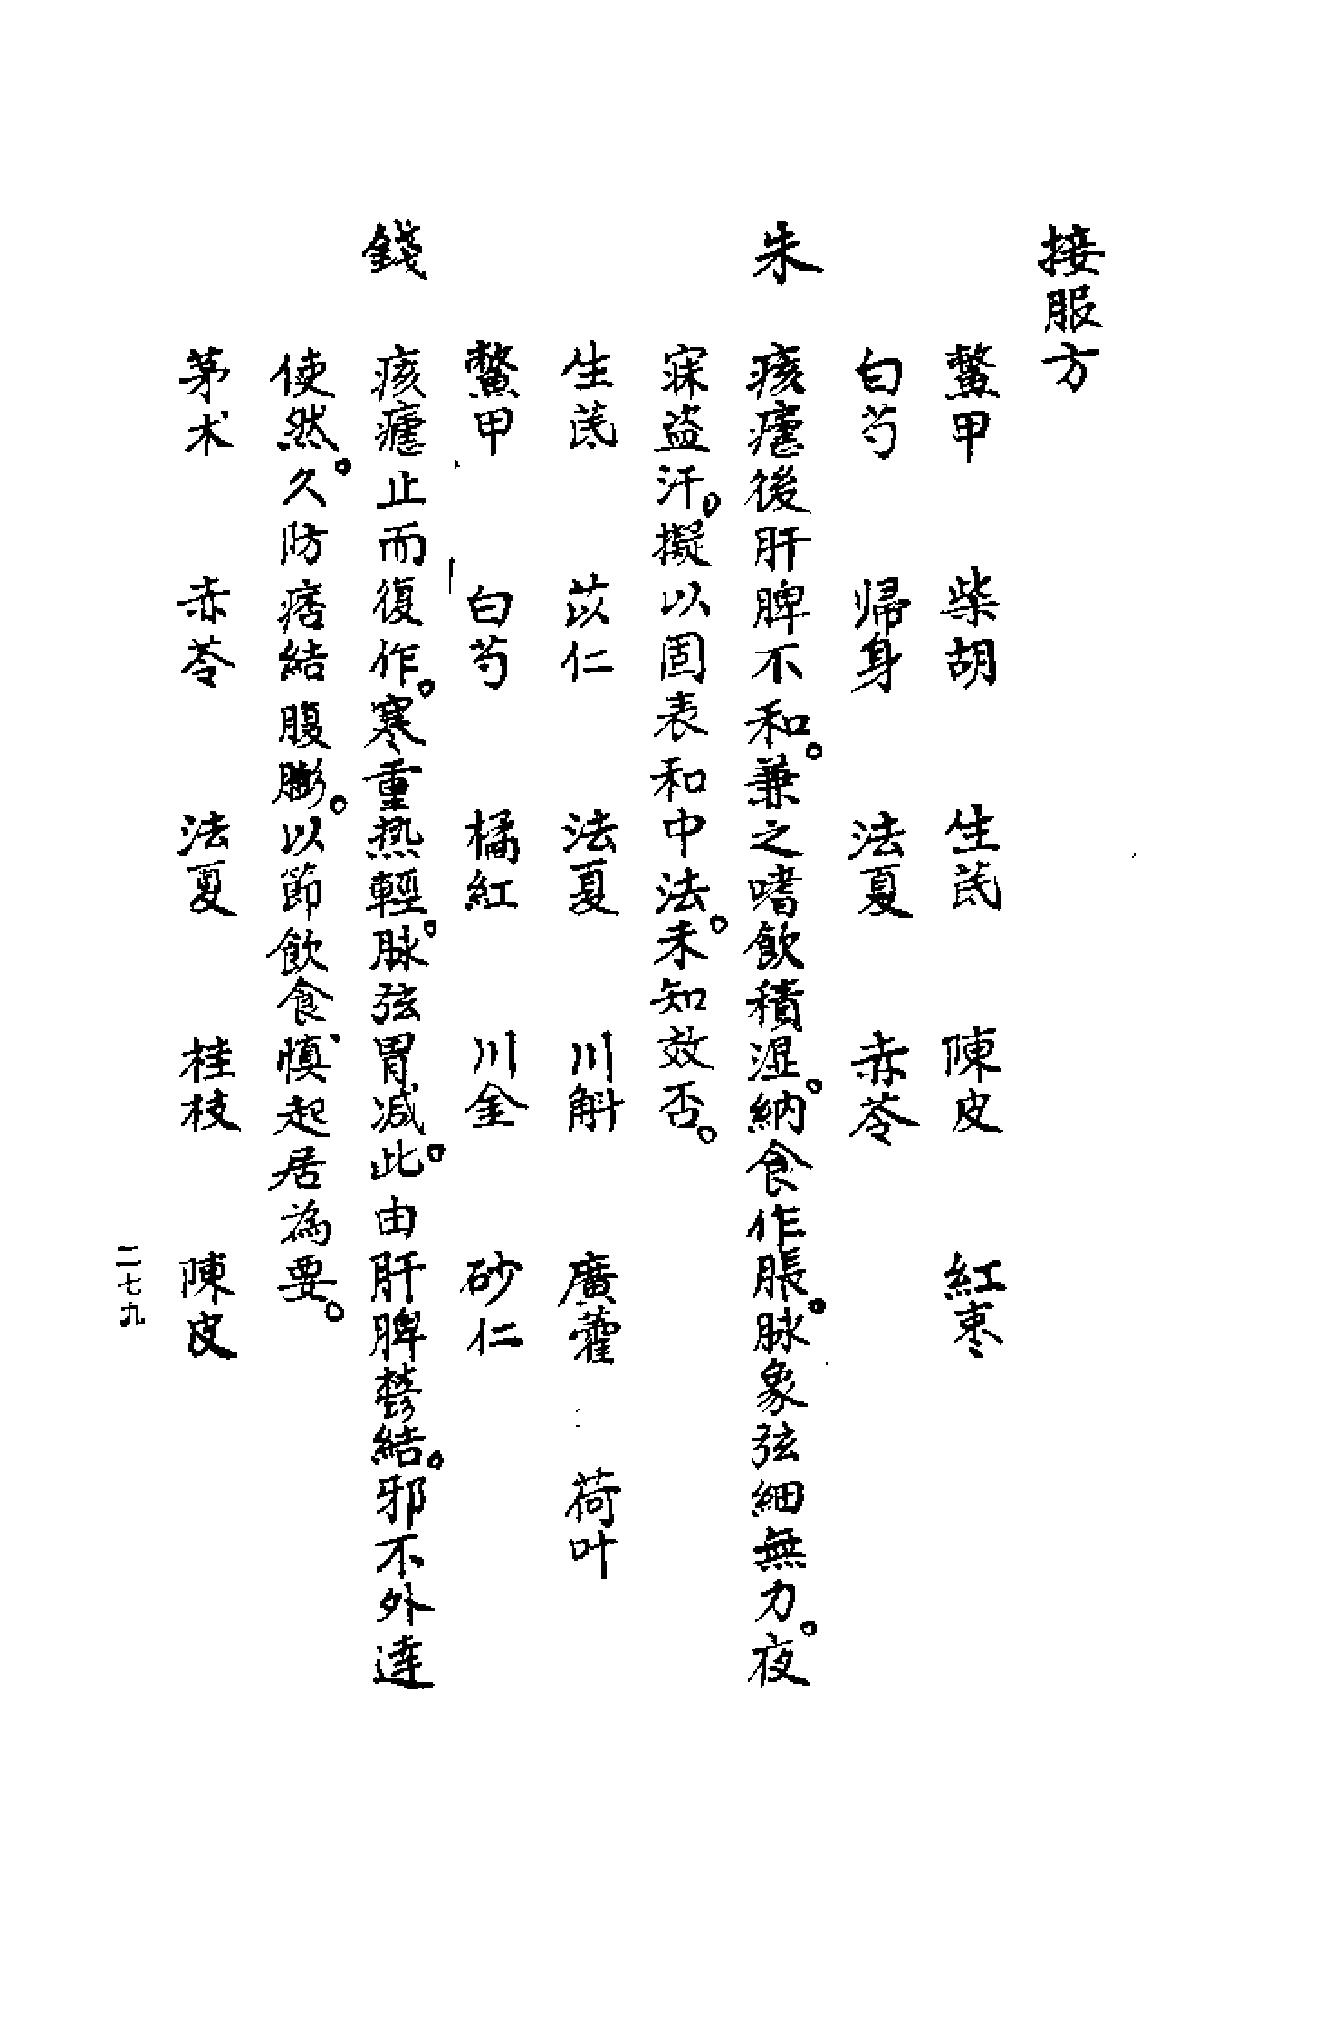 接服方
鱉甲 柴胡 生芪 陳皮 紅枣
白芍 帰身 法夏 赤苓
朱 痎瘧後肝脾不和。兼之嗜飲積湿。納食作脹。脉象弦細無力。夜
寐盗汗。擬以固表和中法。未知效否。
生芪 苡仁 法夏 川斛 廣藿 荷叶
鱉甲 白芍 橘紅 川金 砂仁
錢 痎瘧止而復作。寒重热輕。脉弦胃减。此由肝脾欝結。邪不外達
使然。久防痞結腹膨。以節飲食、慎起居為要。
茅术 赤苓 法夏 桂枝 陳皮
二七九